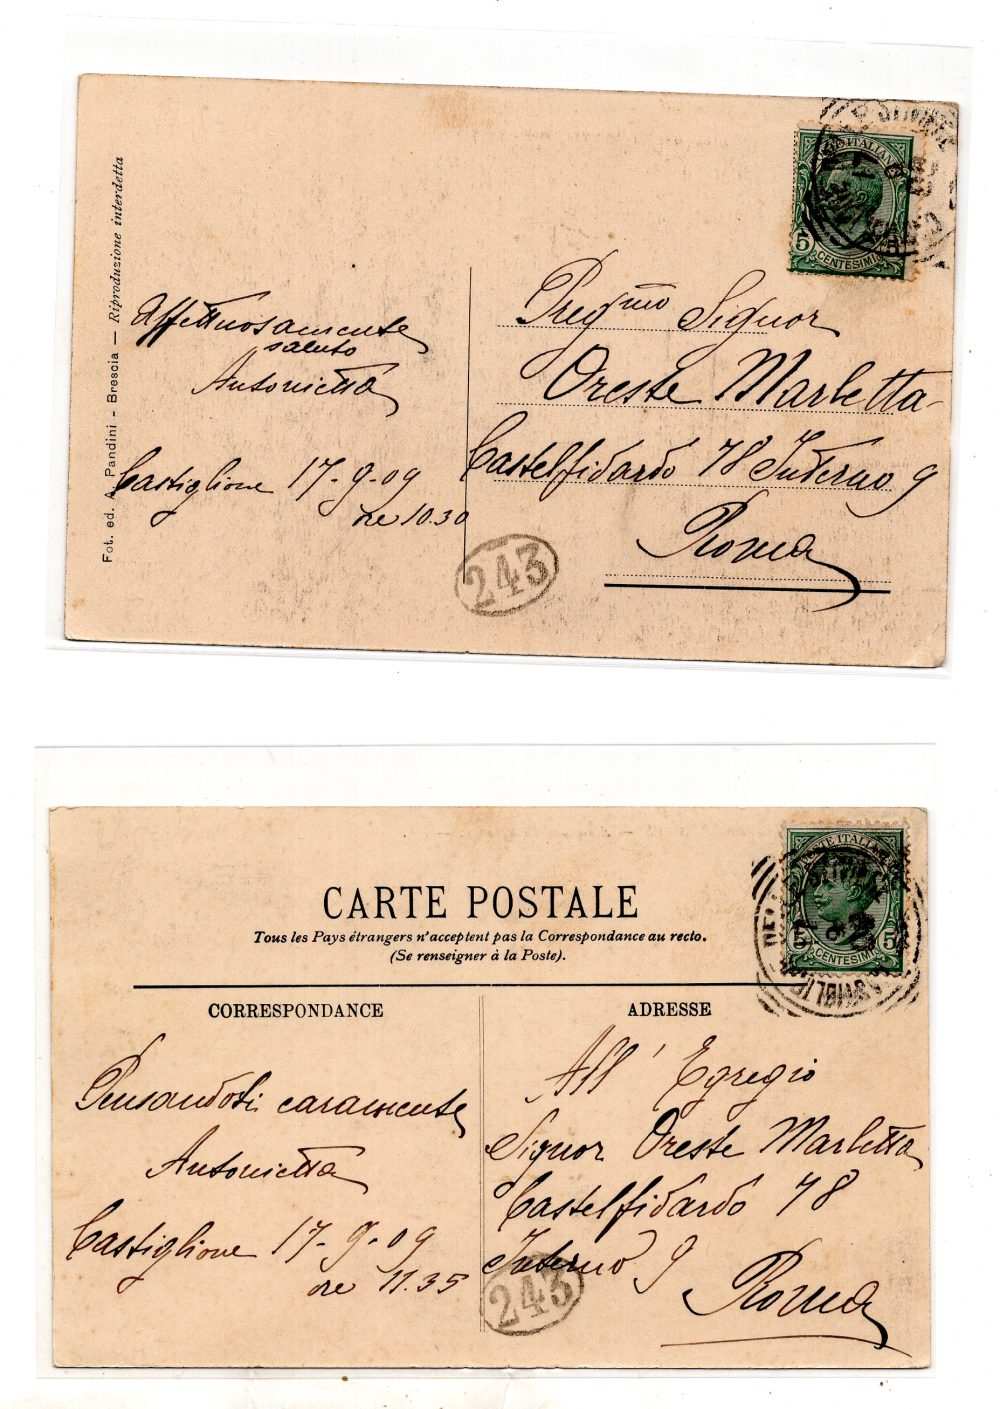 Fot. ed. A. Pandini - Brescia — Riproduzione interdetta
POSTE ITALIANE
5 5
CENTESIMI
Affettuosamente
saluto
Antonietta
Castiglione 17-9-09
ore 10.30
Pregmo Signor
Oreste Marletta
Castelfidardo 78 Interno 9
Roma
243
POSTE ITALIANE
5 5
CENTESIMI
CARTE POSTALE
Tous les Pays étrangers n'acceptent pas la Correspondance au recto.
(Se renseigner à la Poste).
CORRESPONDANCE
Pensandoti caramente
Antonietta
Castiglione 17-9-09
ore 11.35
ADRESSE
All' Egregio
Signor Oreste Marletta
Castelfidardo 78
Interno 9
Roma
243